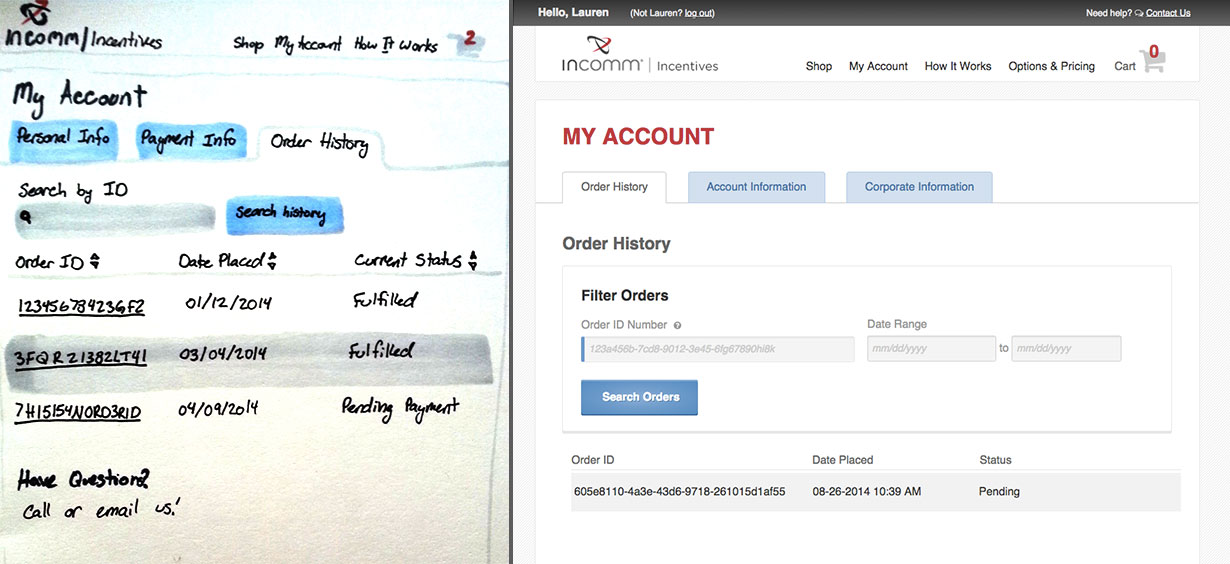 incomm/Incentives
Shop My Account How It Works 2
My Account
Personal Info Payment Info Order History
Search by ID
Search history
Order ID Date Placed Current Status
12345678423GF2 01/12/2014 Fulfilled
3FQRZ1382LT41 03/04/2014 Fulfilled
7H15154NORD3RID 04/09/2014 Pending Payment
Have Question?
Call or email us!
Hello, Lauren (Not Lauren? log out) Need help? Contact Us
incomm | Incentives Shop My Account How It Works Options & Pricing Cart 0
MY ACCOUNT
Order History Account Information Corporate Information
Order History
Filter Orders
Order ID Number ? Date Range
123a456b-7cd8-9012-3e45-6fg67890hi8k mm/dd/yyyy to mm/dd/yyyy
Search Orders
Order ID Date Placed Status
605e8110-4a3e-43d6-9718-261015d1af55 08-26-2014 10:39 AM Pending